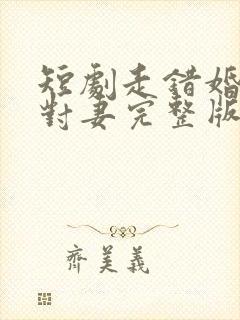 短劇走錯婚
對妻完整版
齊美義